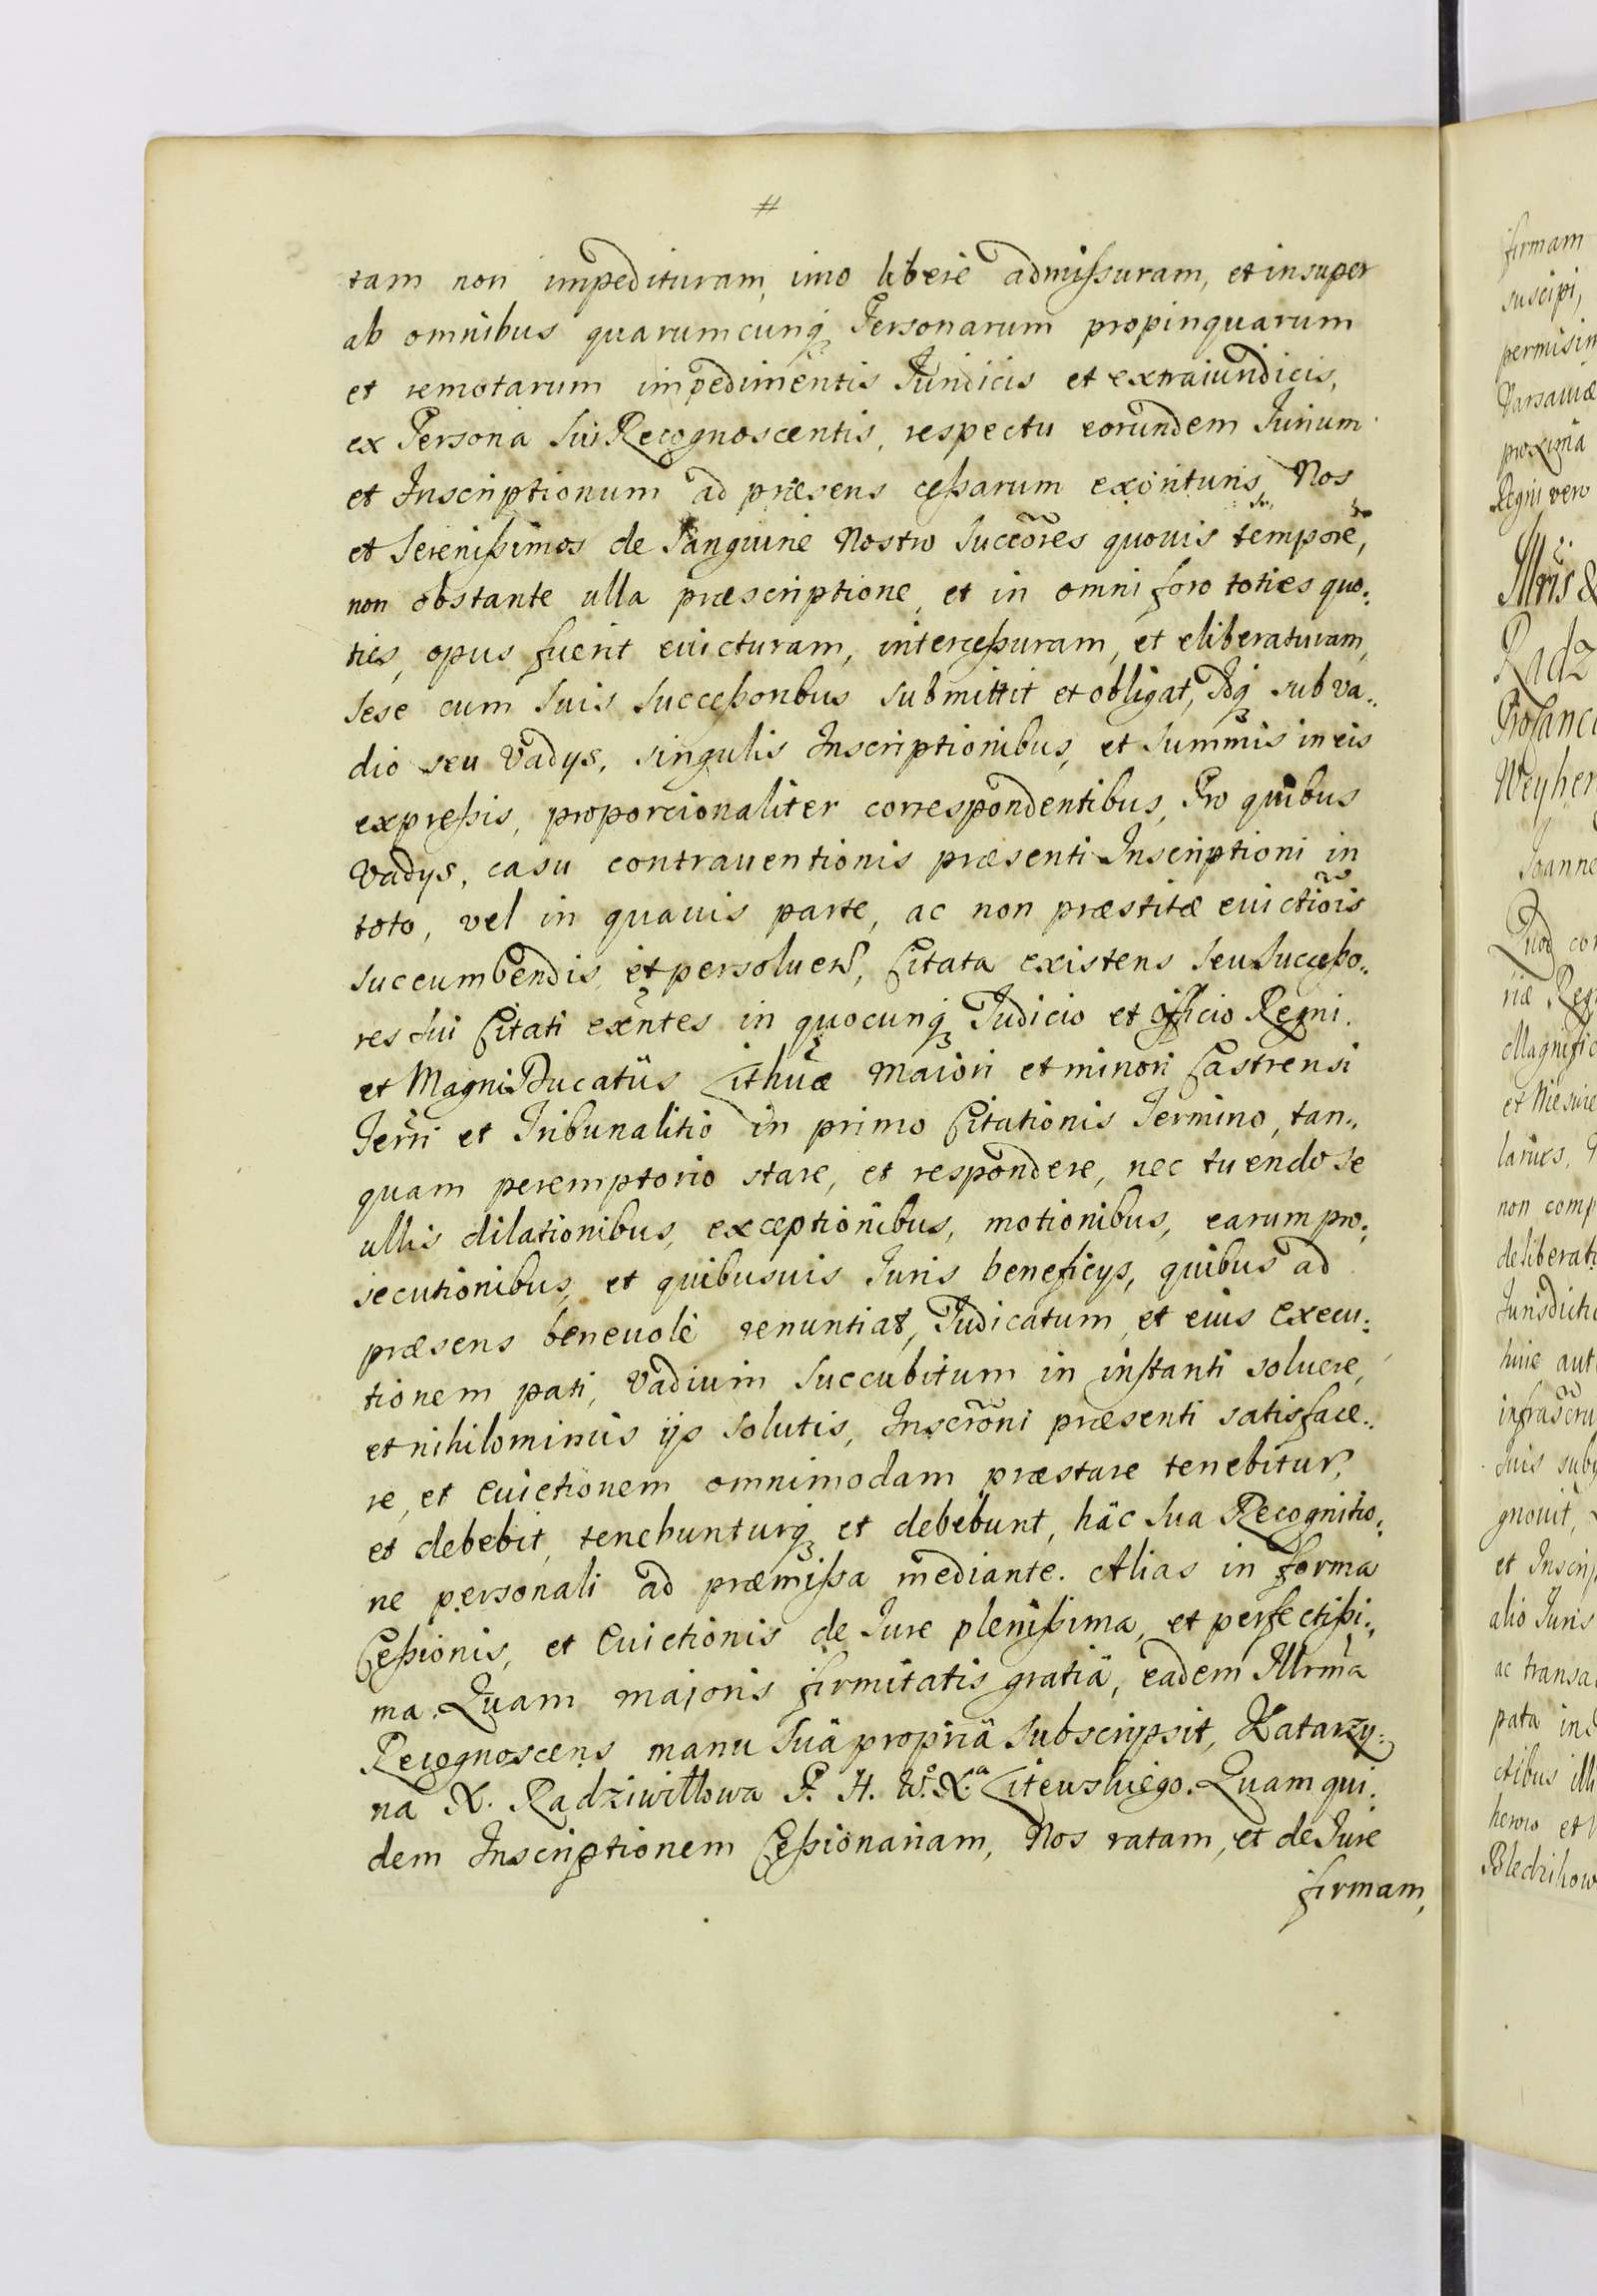 #
tam non impedituram, imo liberè admissuram, et insuper
ab omnibus quarumcunq₃ Personarum propinquarum
et remotarum impedimentis Juridicis et extraiuridicis,
ex Persona Sui Recognoscentis, respectu eorundem Jurium
et Inscriptionum ad præsens cessarum exorituris, Nos
et Serenissimos de Sanguine Nostro Succõres quouis tempore,
non obstante ulla præscriptione, et in omni foro toties quo:
ties, opus fuerit euicturam, intercessuram, et eliberaturam,
Sese cum Suis Successoribus Submittit et obligat, Idq₃ sub va:
dio seu Vadys, singulis Inscriptionibus, et Summis in eis
expressis, proporcionaliter correspondentibus, Pro quibus
Vadys, casu contrauentionis præsenti Inscriptioni in
toto, vel in quauis parte, ac non præstitæ euictiõis
succumbendis, et persoluen̄, Citata existens Seu Successo:
res Sui Citati exñtes in quocunq₃ Judicio et Officio Regni
et Magni Ducatûs Lithuæ Maiori et minori Castrensi
Terri et Tribunalitio in primo Citationis Termino, tan:
quam peremptorio stare, et respondere, nec tuendo se
ullis dilationibus, exceptionibus, motionibus, earum pro:
secutionibus, et quibusuis Juris beneficys, quibus ad
præsens beneuolè renuntiat, Judicatum, et eius execu:
tionem pati, Vadium Succubitum in instanti soluere,
et nihilominus ijs Solutis, Inscrõni præsenti satisface:
re, et Euictionem omnimodam præstare tenebitur,
et debebit, tenebunturq₃ et debebunt, hâc Sua Recognitio:
ne personali ad præmissa mediante. Alias in forma
Cessionis, et Euictionis de Jure plenissima, et perfectissi:
ma. Quam majoris firmitatis gratiâ, eadem Illrma
Recognoscens manu Suâ propriâ Subscripsit, Katarzy:
na X. Radziwiłłowa P. H. W.° X.ª Litewskiego. Quam qui:
dem Inscriptionem Cessionariam, Nos ratam, et de Jure
firmam,
firmam
suscipi,
permisim
Varsauiæ
proxima
Regni vero
Illris &
Radz
Weyher
Joanne
Quod con
riæ Reg
Magnific
non comp
deliberati
Jurisdicti
huic aut
Suis sub
gnouit,
et Inscrip
alio Juris
ac transa
pata in
ctibus illi